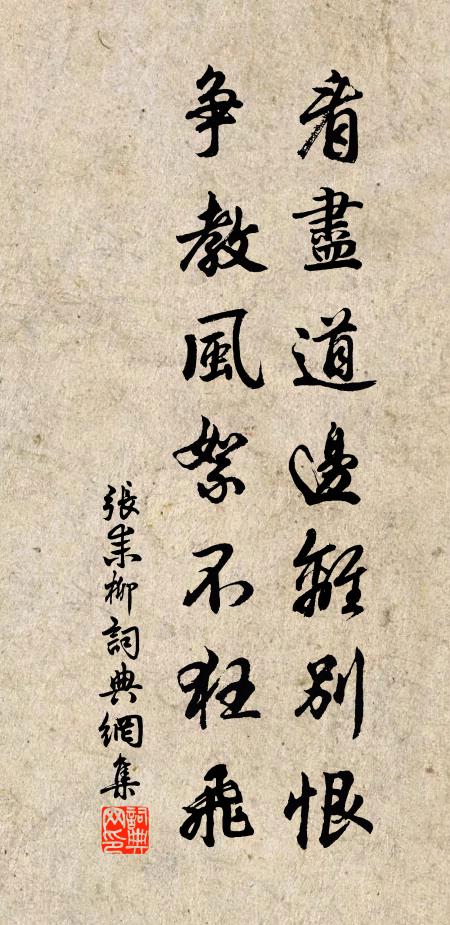 看盡道邊離別恨
争教風絮不狂飛
張耒柳詞典網集
詞典网印